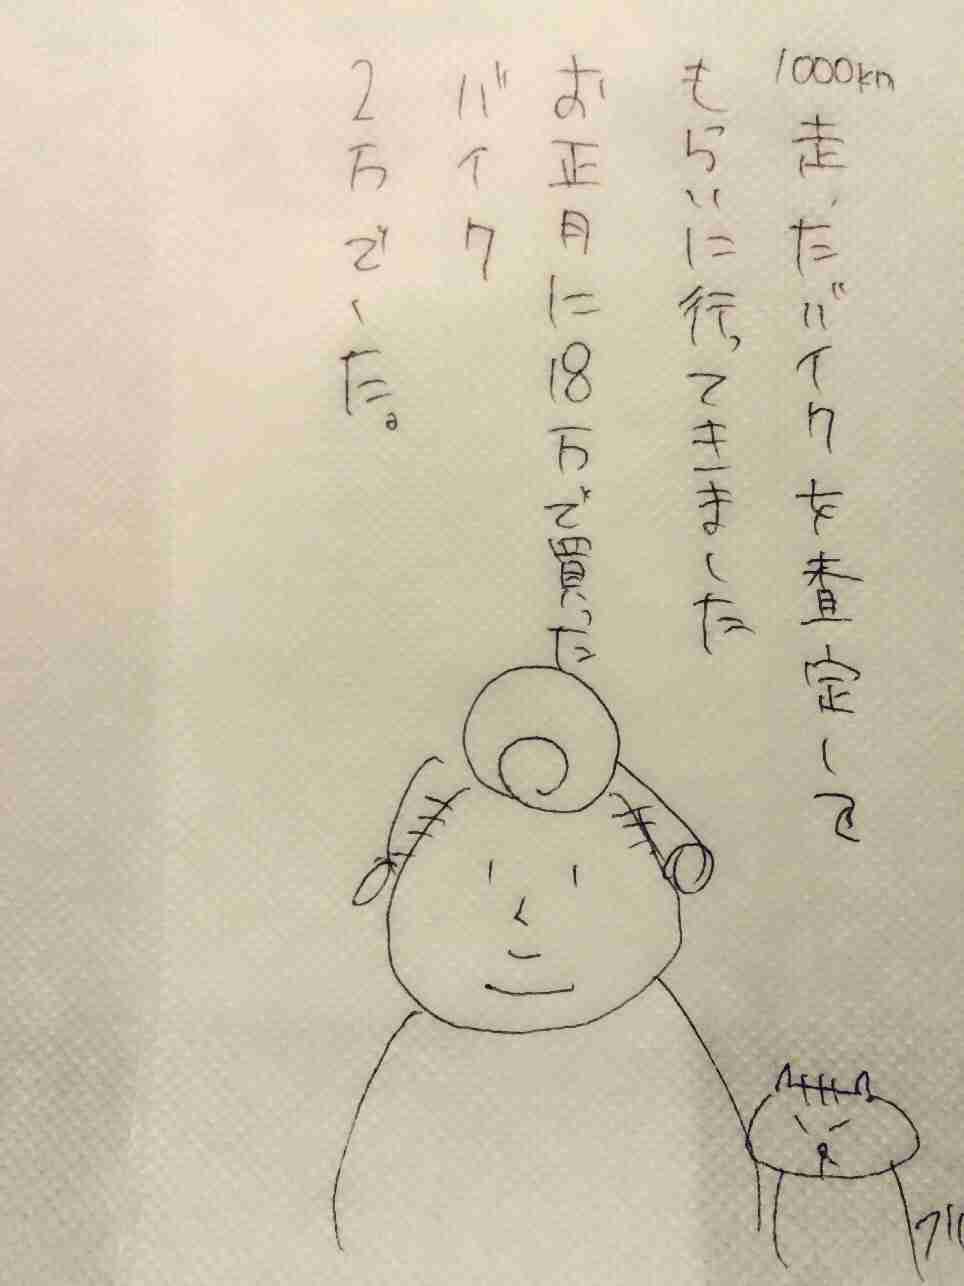 1000km走ったバイクを査定して
もらいに行ってきました
お正月に18万で買った
バイク
2万でした。